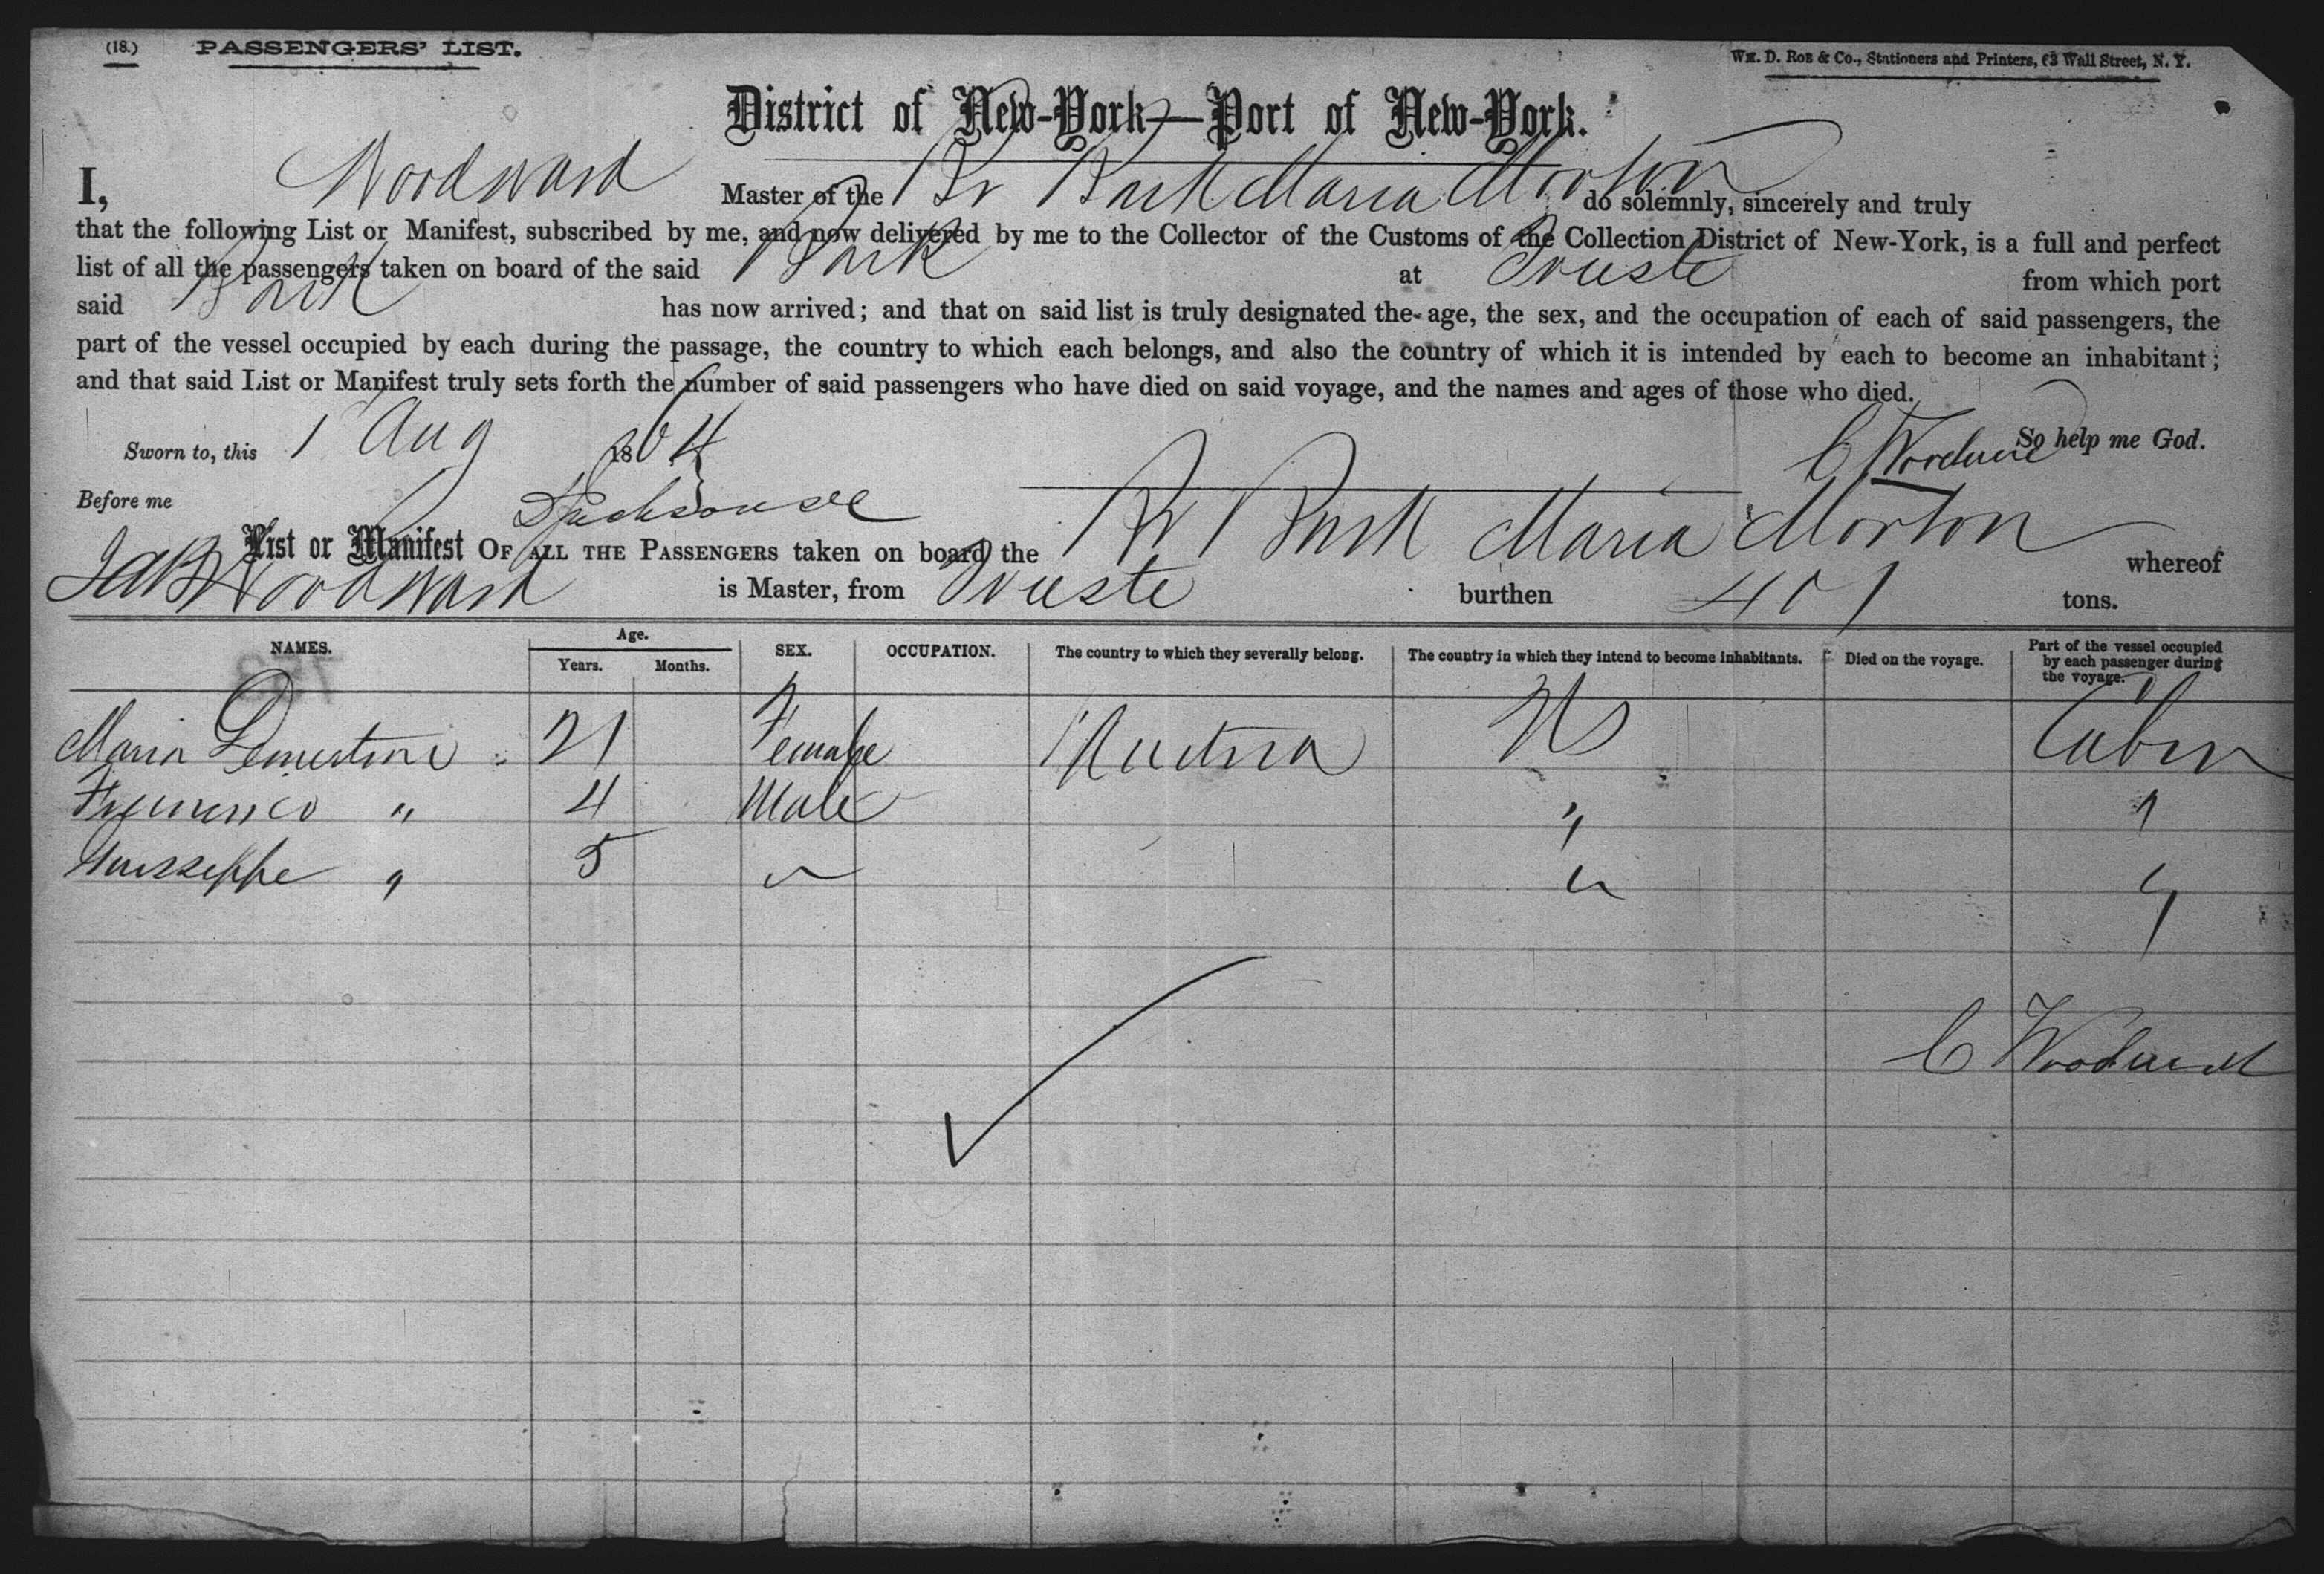 (18.) PASSENGERS' LIST.
WM. D. ROE & Co., Stationers and Printers, 63 Wall Street, N. Y.
District of New-York—Port of New-York.
I, Woodward Master of the Br Bark Maria Morton do solemnly, sincerely and truly
that the following List or Manifest, subscribed by me, and now delivered by me to the Collector of the Customs of the Collection District of New-York, is a full and perfect
list of all the passengers taken on board of the said Bark at Trieste from which port
said Bark has now arrived; and that on said list is truly designated the age, the sex, and the occupation of each of said passengers, the
part of the vessel occupied by each during the passage, the country to which each belongs, and also the country of which it is intended by each to become an inhabitant;
and that said List or Manifest truly sets forth the number of said passengers who have died on said voyage, and the names and ages of those who died.
Sworn to, this 1 Aug 1864 C Woodward So help me God.
Before me
List or Manifest OF ALL THE PASSENGERS taken on board the Br Bark Maria Morton whereof
Woodward is Master, from Trieste burthen 401 tons.
NAMES. Age. Years. Months. SEX. OCCUPATION. The country to which they severally belong. The country in which they intend to become inhabitants. Died on the voyage. Part of the vessel occupied by each passenger during the voyage.
Maria 21 Female Austria US Cabin
" 4 Male " "
Guisseppe " 5 " " "
C Woodward